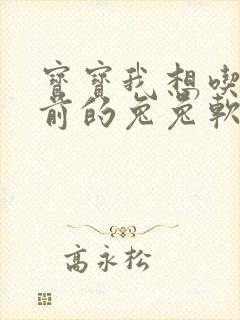 寳寳我想喫
前的兔兔軟
高永松